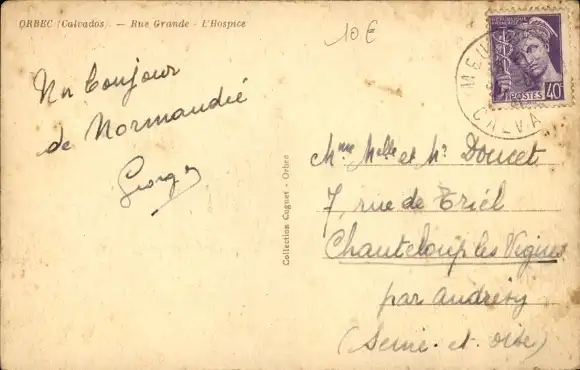 ORBEC (Calvados). — Rue Grande - L'Hospice
10 €
RÉPUBLIQUE FRANÇAISE
POSTES 40c
CALVA
Un bonjour
de Normandie
Georges
Collection Cuguet - Orbec
Mme Melle et Mr Doucet
7, rue de Triel
Chanteloup les Vignes
par Andrésy
(Seine-et-Oise)